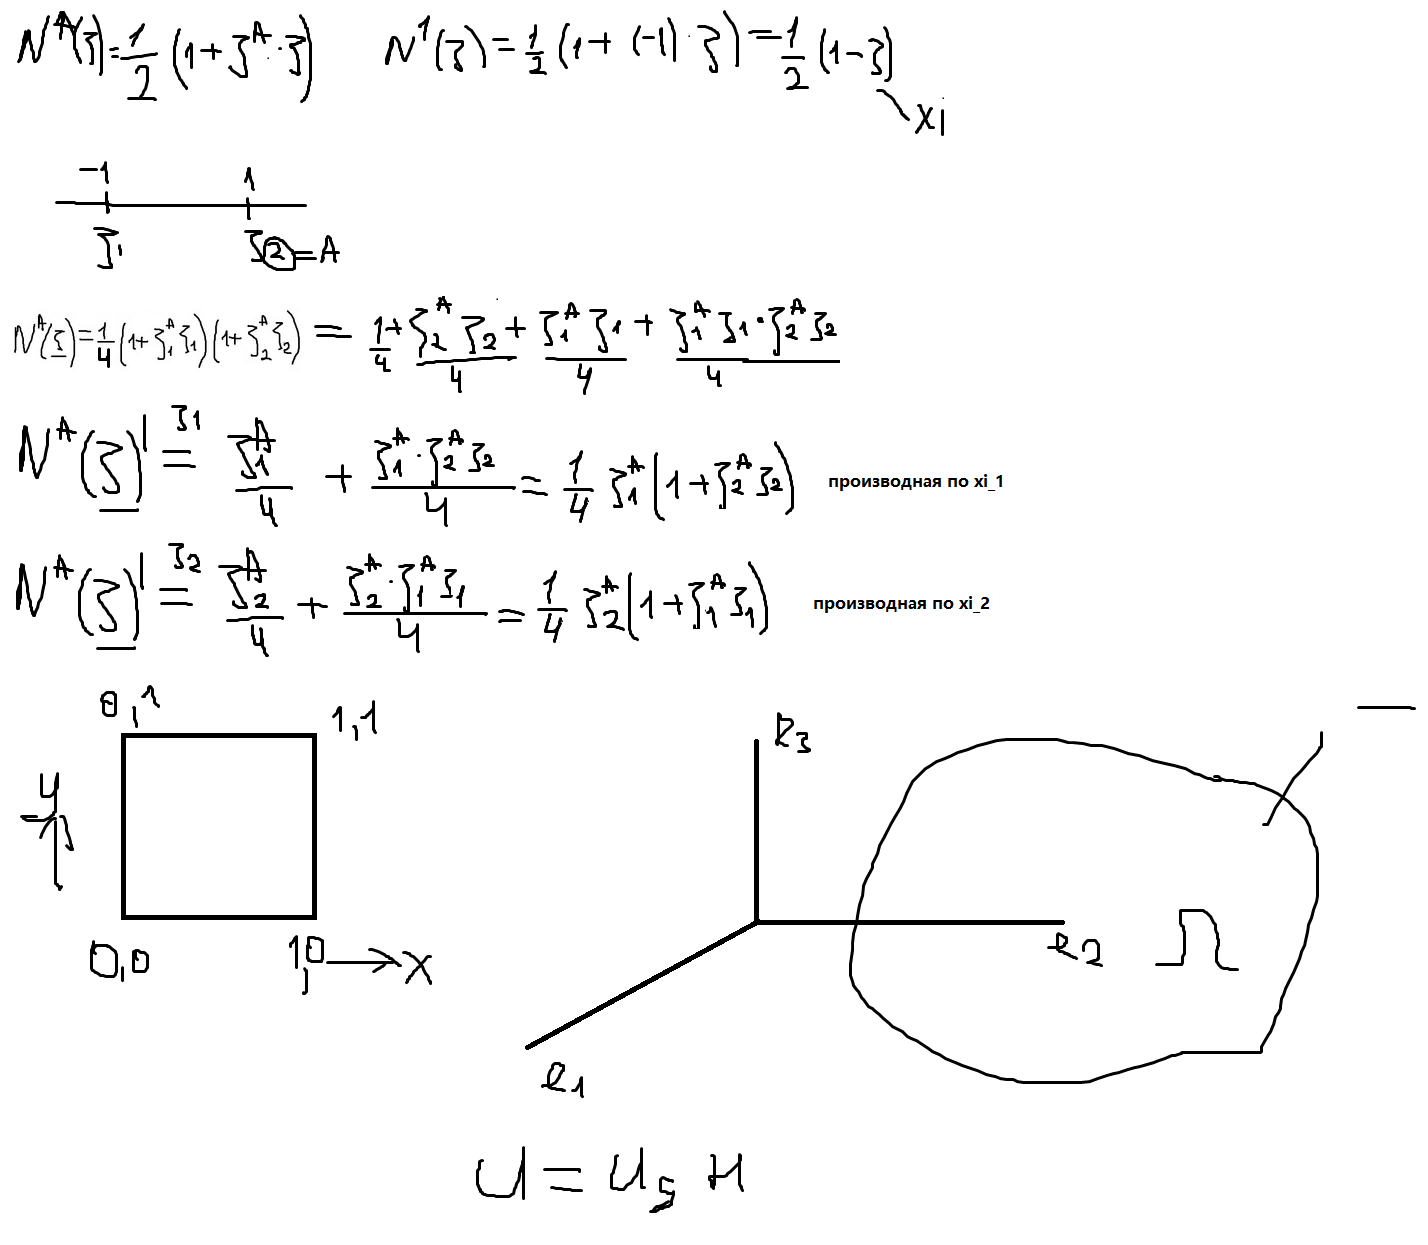 N^A(ξ) = 1/2 (1 + ξ^A · ξ)    N^1(ξ) = 1/2 (1 + (-1) · ξ) = 1/2 (1 - ξ)
xi
-1    1
ξ_1    ξ_2 = A
N^A(ξ) = 1/4 (1 + ξ_1^A ξ_1)(1 + ξ_2^A ξ_2) = 1/4 + ξ_2^A ξ_2 / 4 + ξ_1^A ξ_1 / 4 + ξ_1^A ξ_1 · ξ_2^A ξ_2 / 4
N^A(ξ)' ξ_1 = ξ_1^A / 4 + ξ_1^A · ξ_2^A ξ_2 / 4 = 1/4 ξ_1^A (1 + ξ_2^A ξ_2)    производная по xi_1
N^A(ξ)' ξ_2 = ξ_2^A / 4 + ξ_2^A · ξ_1^A ξ_1 / 4 = 1/4 ξ_2^A (1 + ξ_1^A ξ_1)    производная по xi_2
0,1    1,1
y
0,0    1,0    x
e_3
e_2    Ω
e_1